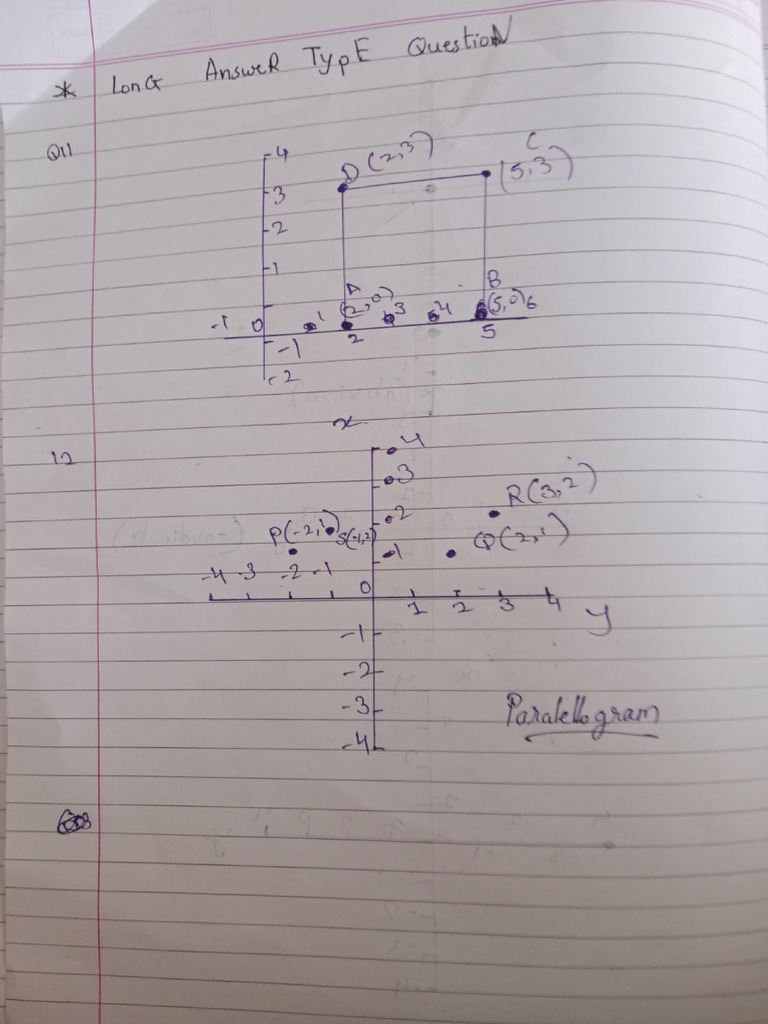 * LonG AnsweR TypE QuestioN
Q11
4
D (2,3)
C
(5,3)
3
2
1
A
B
-1 0 1 (2,0) 3 4 (5,0) 6
-1 2 5
-2
x
12
4
3
R(3,2)
2
P(-2,1) S(-1,2)
Q(2,1)
1
-4 -3 -2 -1 0
1 2 3 4 y
-1
-2
-3
Paralellogram
-4